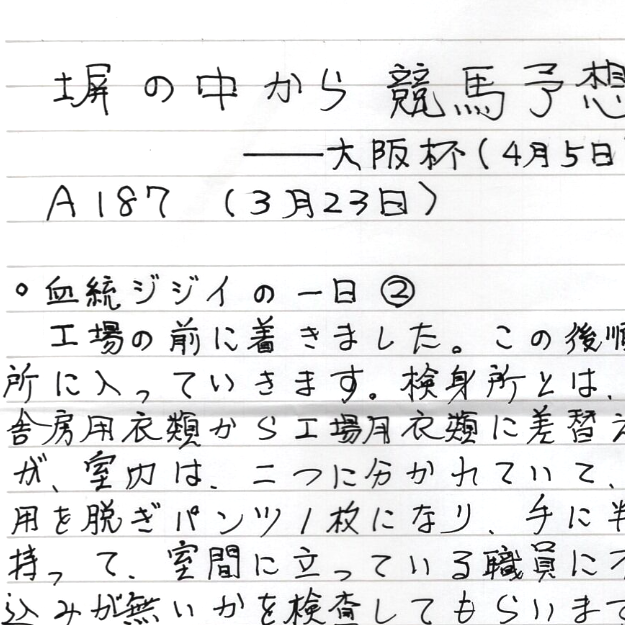 塀の中から競馬予想
――大阪杯(4月5日
A187 (3月23日)
○血統ジジイの一日②
工場の前に着きました。この後順
所に入っていきます。検身所とは、
舎房用衣類から工場用衣類に差替え
が、室内は、二つに分かれていて、
用を脱ぎパンツ1枚になり、手に
持って、室間に立っている職員に不
込みが無いかを検査してもらいます